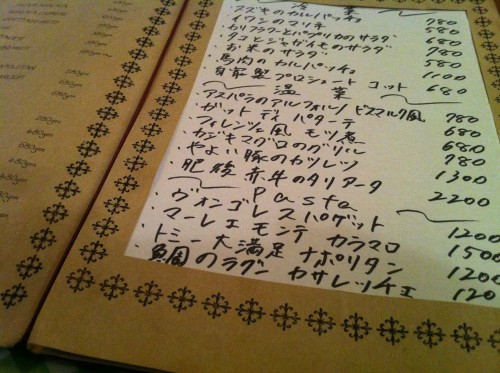 冷菜
・スズキのカルパッチョ 780
・イワシのマリネ 580
・カリフラワーとパプリカのサラダ 680
・タコとジャガイモのサラダ 780
・お米のサラダ 580
・馬肉のカルパッチョ 1100
・自家製プロシュート コット 680
温菜
・アスパラのアルフォルノ ビスマルク風 780
・ガット ディ パターテ 680
・フィレンツェ風 モツ煮 680
・カジキマグロのグリル 780
・やよい豚のカツレツ 1300
・肥後赤牛のタリアータ 2200
Pasta
・ヴォンゴレ スパゲット 1200
・マーレ エ モンテ カラマロ 1500
・トミー大満足 ナポリタン 1200
・鯛のラグー カサレッチェ 120